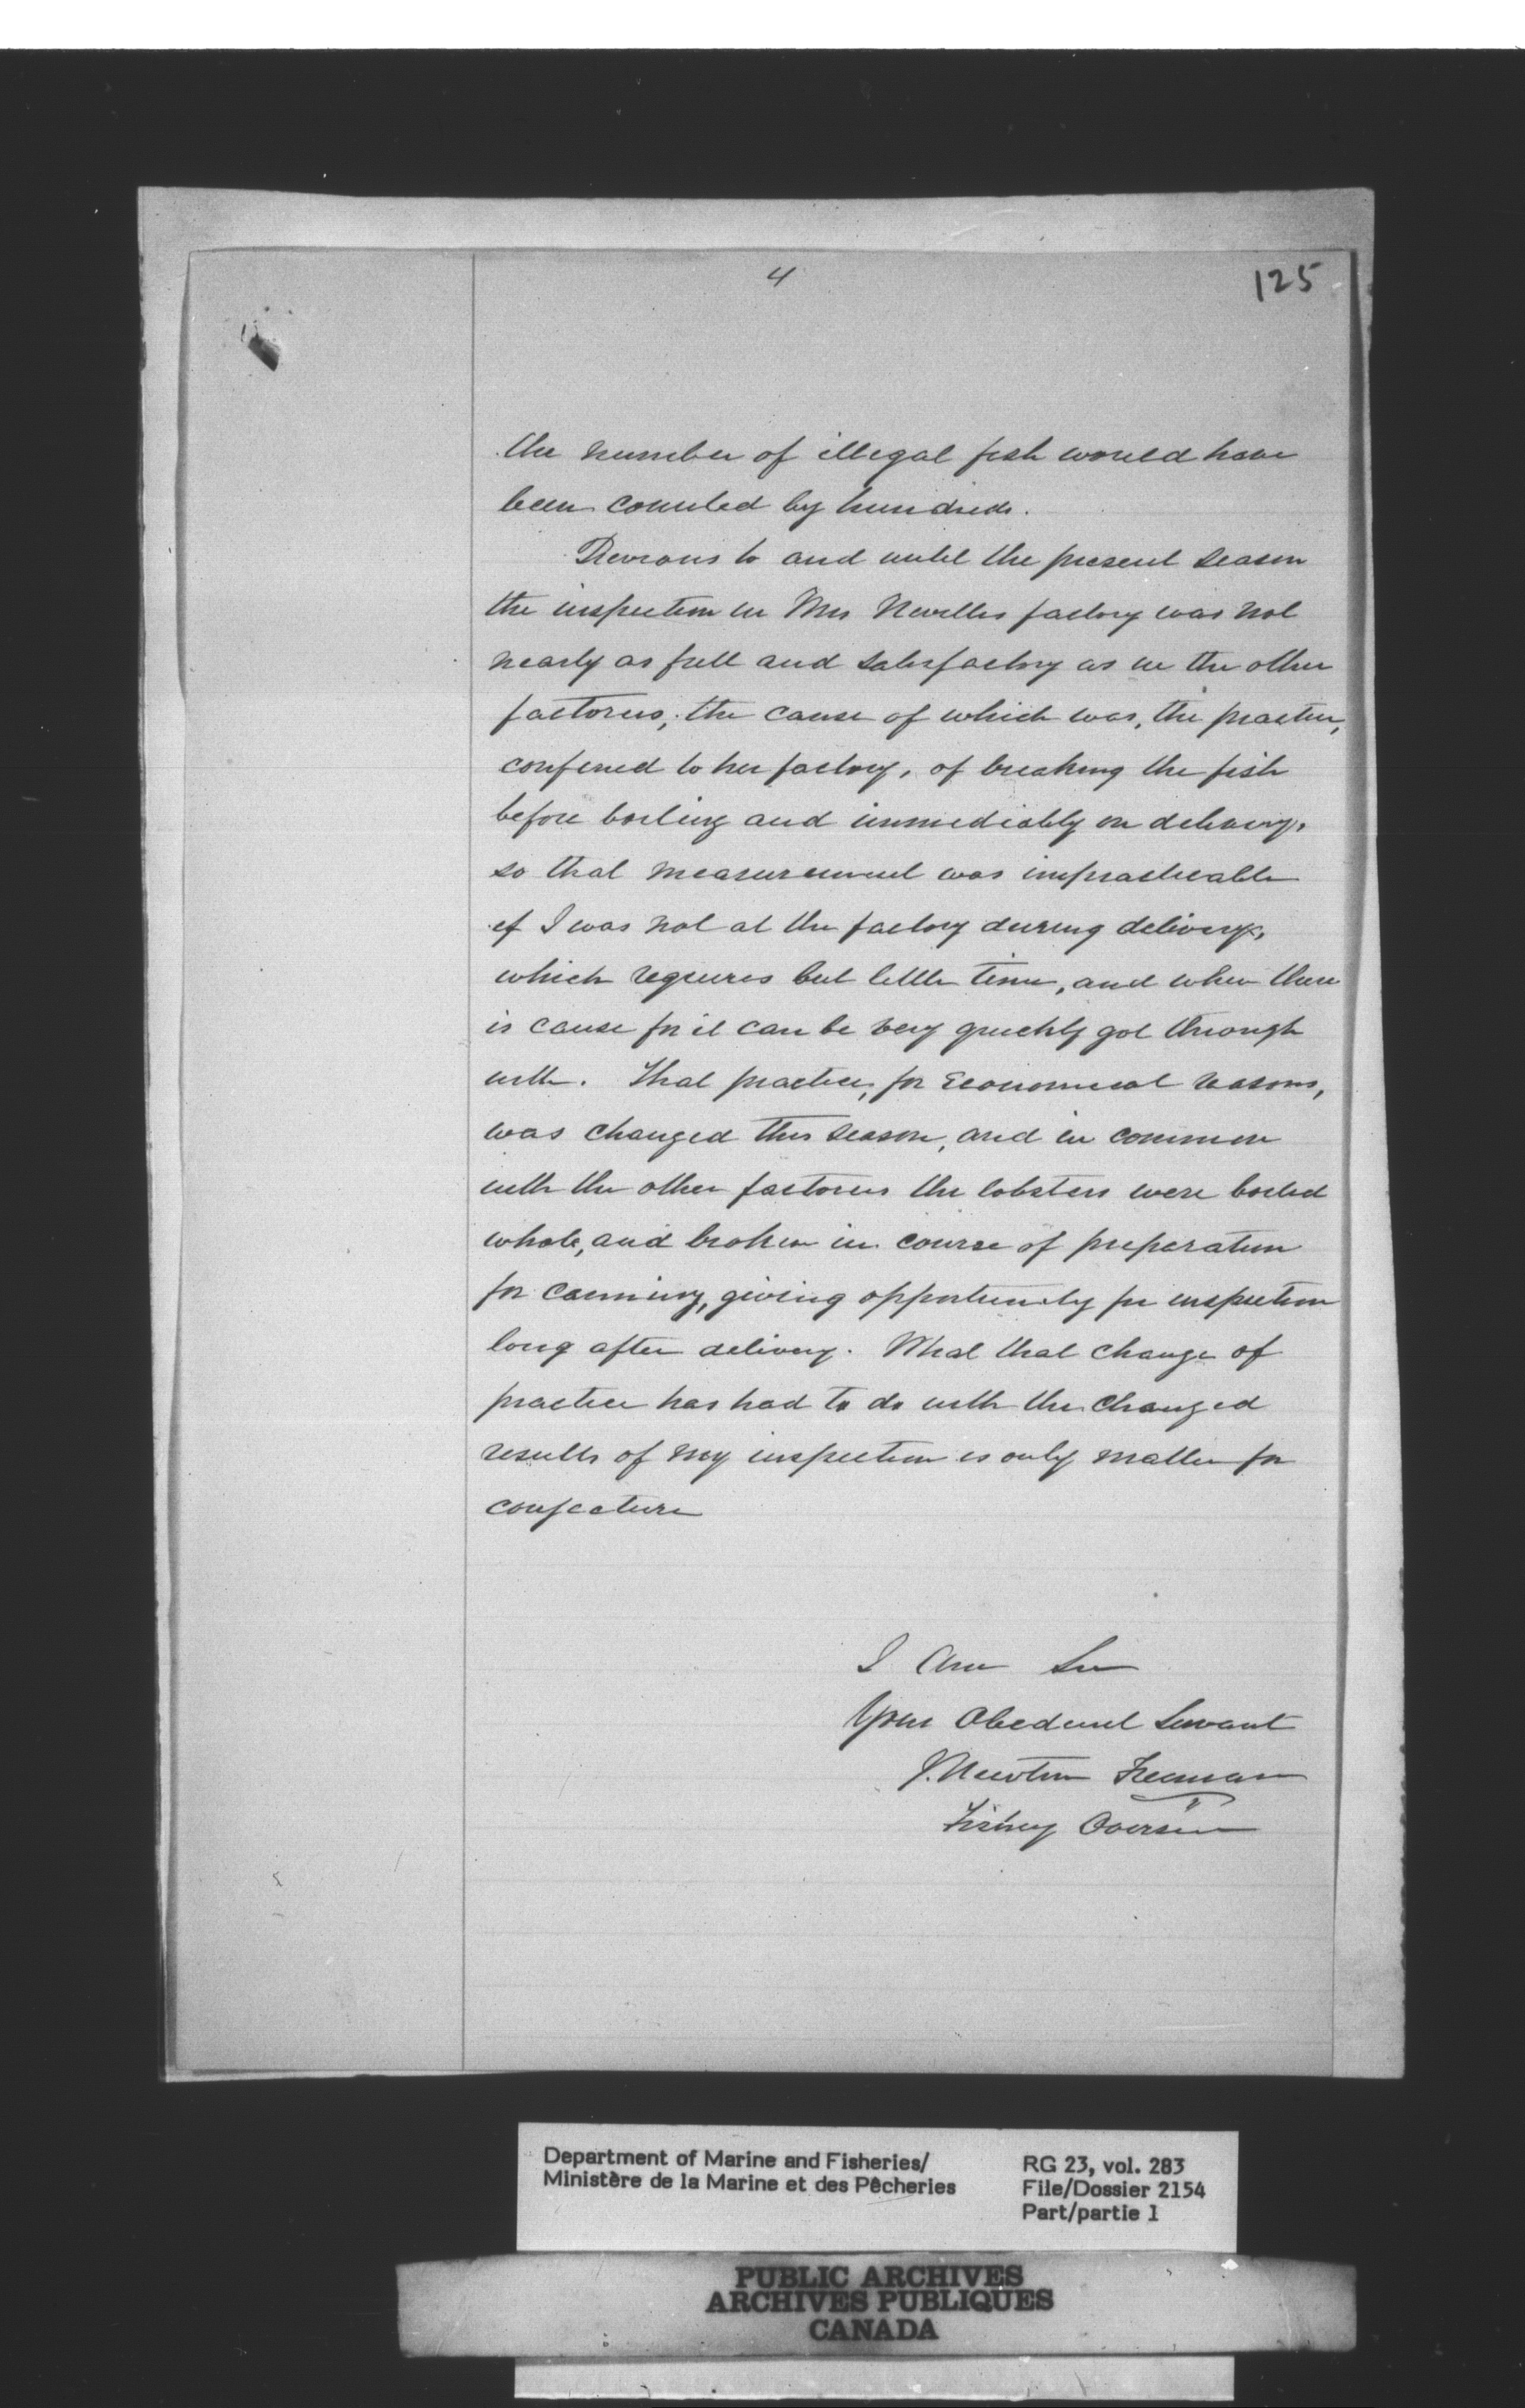 4
125
the number of illegal fish would have
been counted by hundreds.
Previous to and until the present season
the inspection in Mrs Nevilles factory was not
nearly as full and satisfactory as in the other
factories, the cause of which was, the practice,
confined to her factory, of breaking the fish
before boiling and immediately on delivery,
so that measurement was impracticable
if I was not at the factory during delivery,
which requires but little time, and when there
is cause for it can be very quickly got through
with. That practice, for Economical reasons,
was changed this season, and in common
with the other factories the lobsters were boiled
whole, and broken in course of preparation
for canning, giving opportunity for inspection
long after delivery. What that change of
practice has had to do with the changed
results of my inspection is only matter for
conjecture
I Am Sir
Your Obedient Servant
J. Newton Freeman
Fishery Overseer
Department of Marine and Fisheries/
Ministère de la Marine et des Pêcheries
RG 23, vol. 283
File/Dossier 2154
Part/partie 1
PUBLIC ARCHIVES
ARCHIVES PUBLIQUES
CANADA